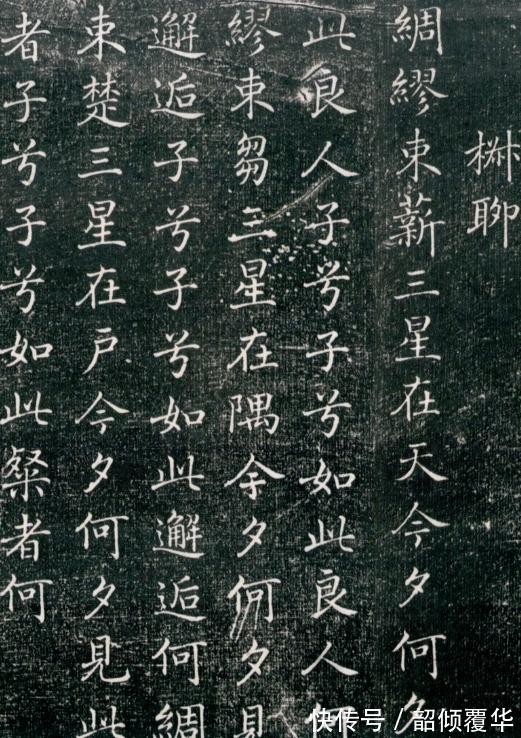 椒聊
綢繆束薪三星在天今夕何夕
此良人子兮子兮如此良人
繆束芻三星在隅今夕何夕見
邂逅子兮子兮如此邂逅何綢
束楚三星在戶今夕何夕見此
者子兮子兮如此粲者何
快传号 / 韶倾覆华